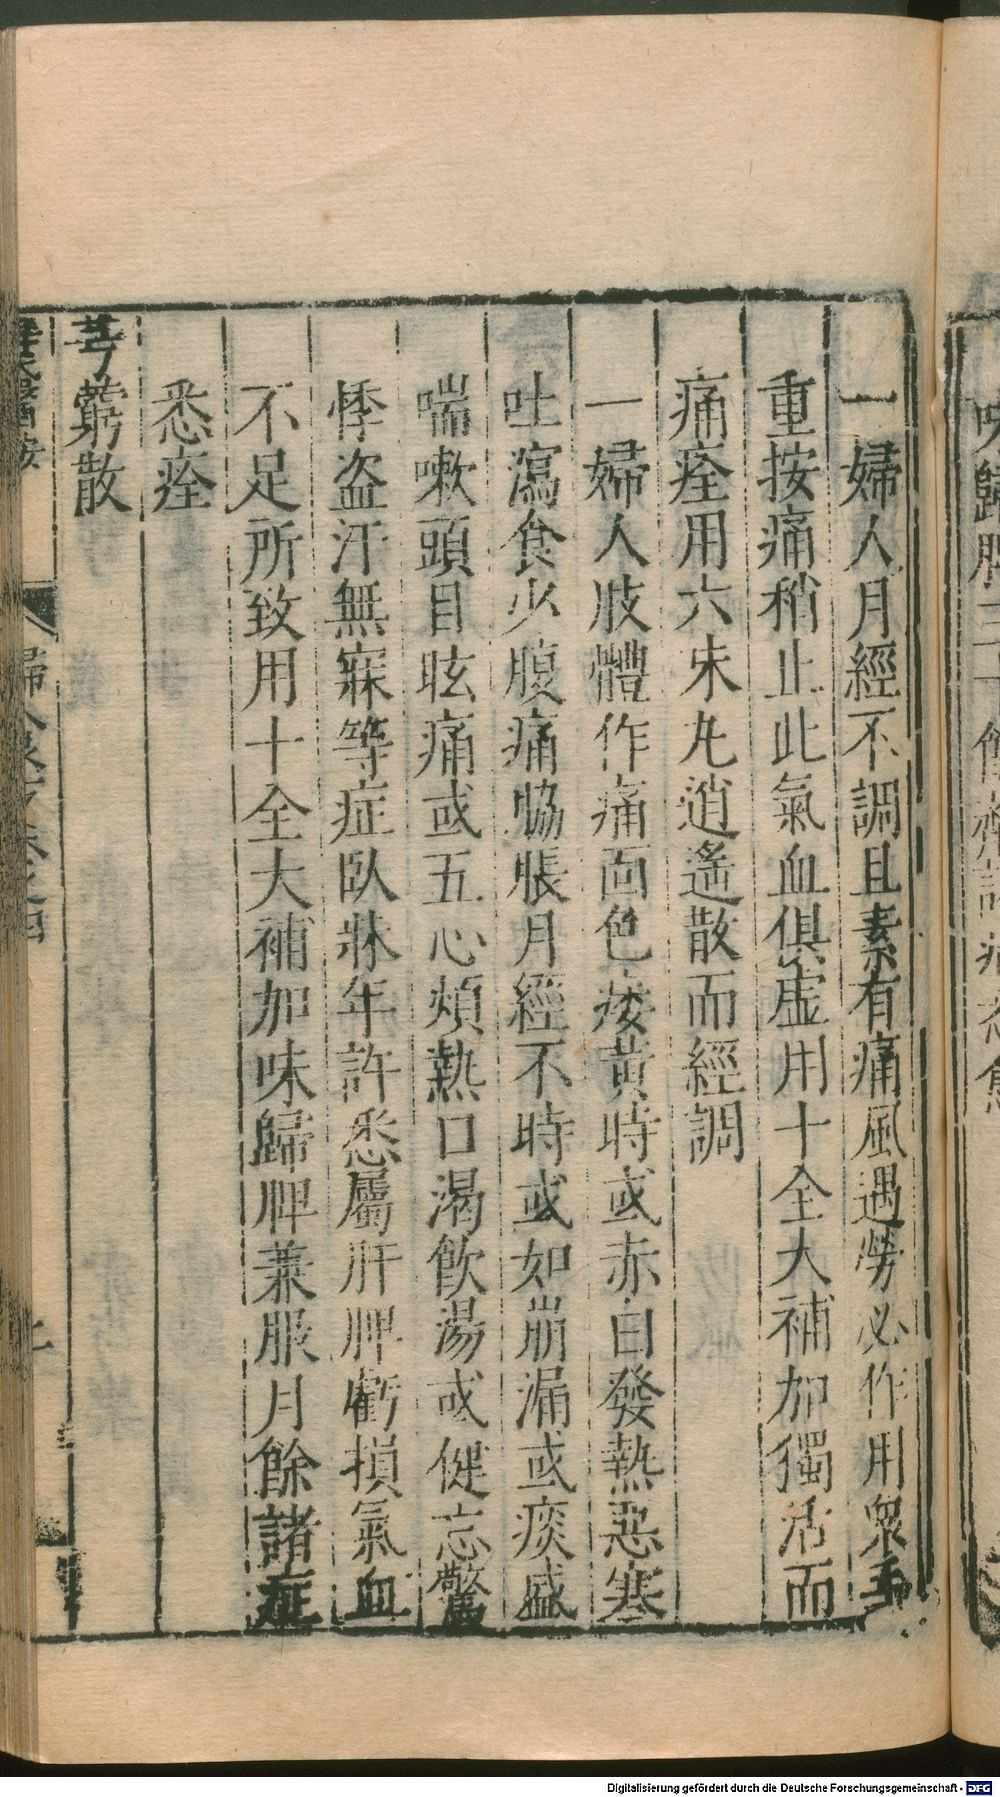 一婦人月經不調且素有痛風遇勞必作用衆手
重按痛稍止此氣血俱虛用十全大補加獨活而
痛痊用六味丸逍遙散而經調
一婦人肢體作痛面色痿黃時或赤白發熱惡寒
吐瀉食少腹痛脇脹月經不時或如崩漏或痰盛
喘嗽頭目眩痛或五心煩熱口渴飲湯或健忘驚
悸盗汗無寐等症臥牀年許悉屬肝脾虧損氣血
不足所致用十全大補加味歸脾兼服月餘諸症
悉痊
芎藭散
Digitalisierung gefördert durch die Deutsche Forschungsgemeinschaft - DFG